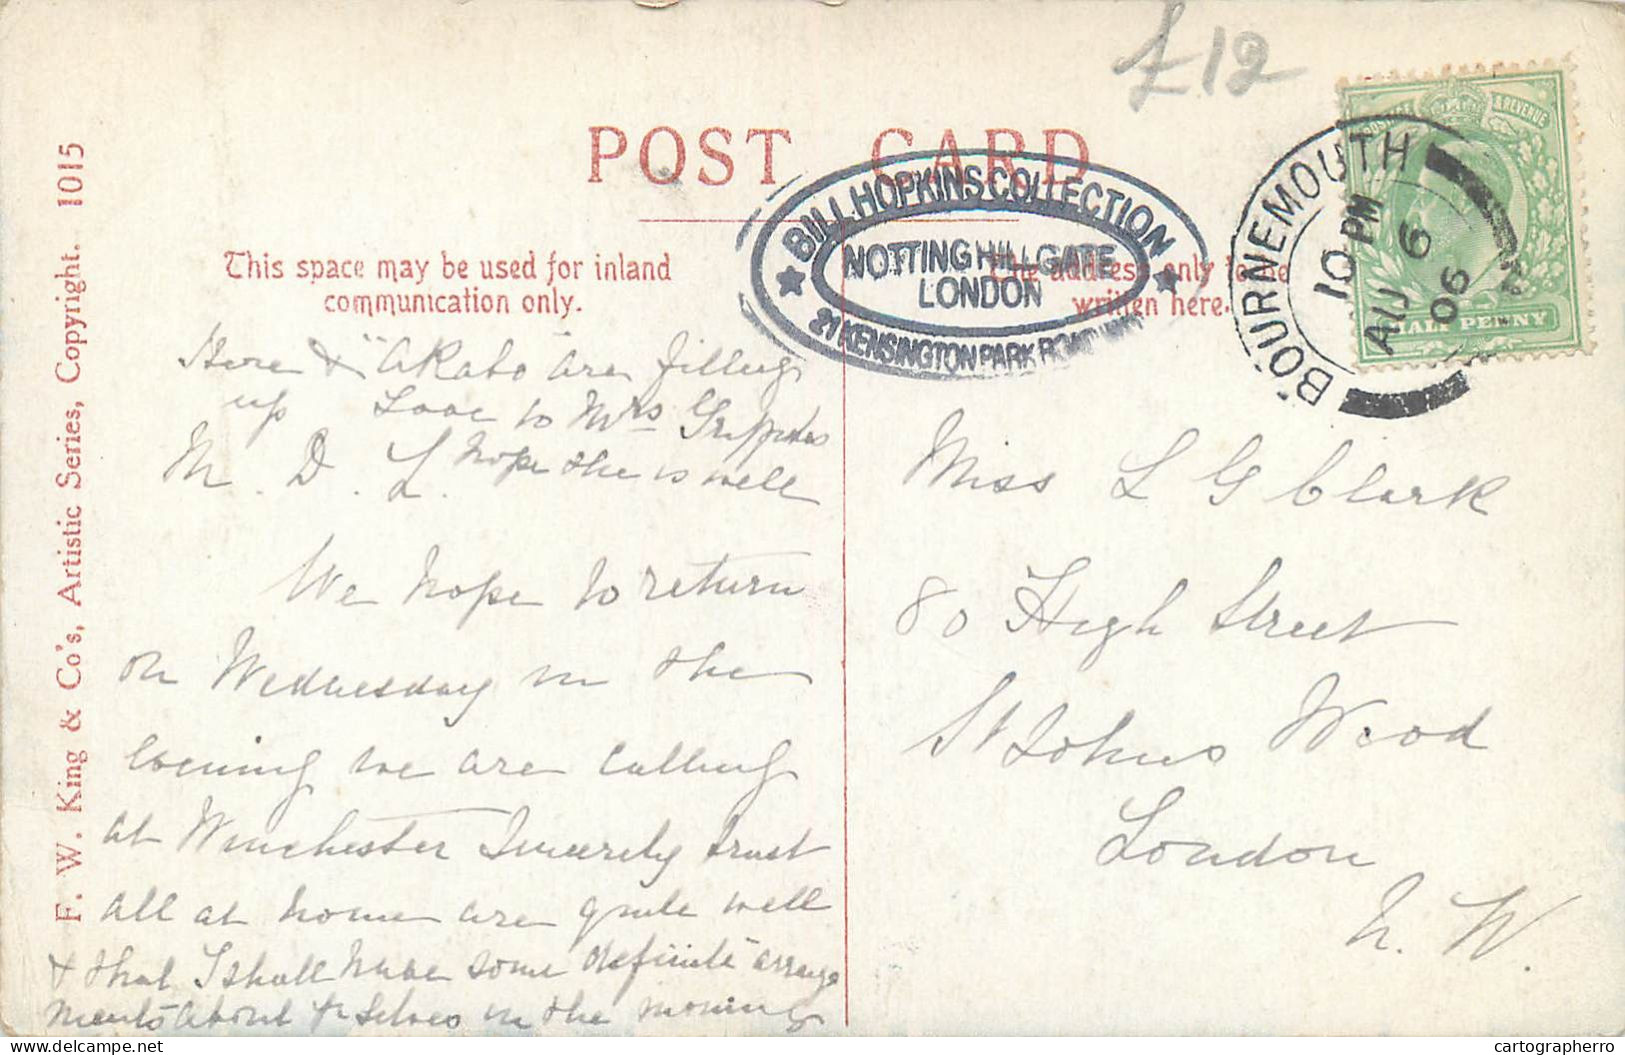 £12
POST CARD
POSTAGE & REVENUE
HALF PENNY
BOURNEMOUTH
10 PM
AU 6
06
BILL HOPKINS COLLECTION
NOTTING HILL GATE
LONDON
21 KENSINGTON PARK ROAD
This space may be used for inland
communication only.
The address only to be
written here.
F. W. King & Co's, Artistic Series, Copyright. 1015
Here & are filling
up Love to Mrs
M. D. L. hope she is well
We hope to return
on Wednesday in the
evening we are calling
at Winchester Sincerely trust
all at home are quite well
& that I shall have some definite arrange
ments about in the morning
Miss L G Clark
80 High Street
St Johns Wood
London
N. W.
cartographerro
www.delcampe.net